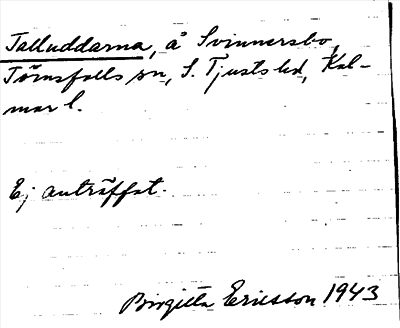 Talluddarna, å Svinnersbo,
Törnsfalls sn, S. Tjusts hd, Kal-
mar l.
Ej anträffat.
Birgitta Ericsson 1943